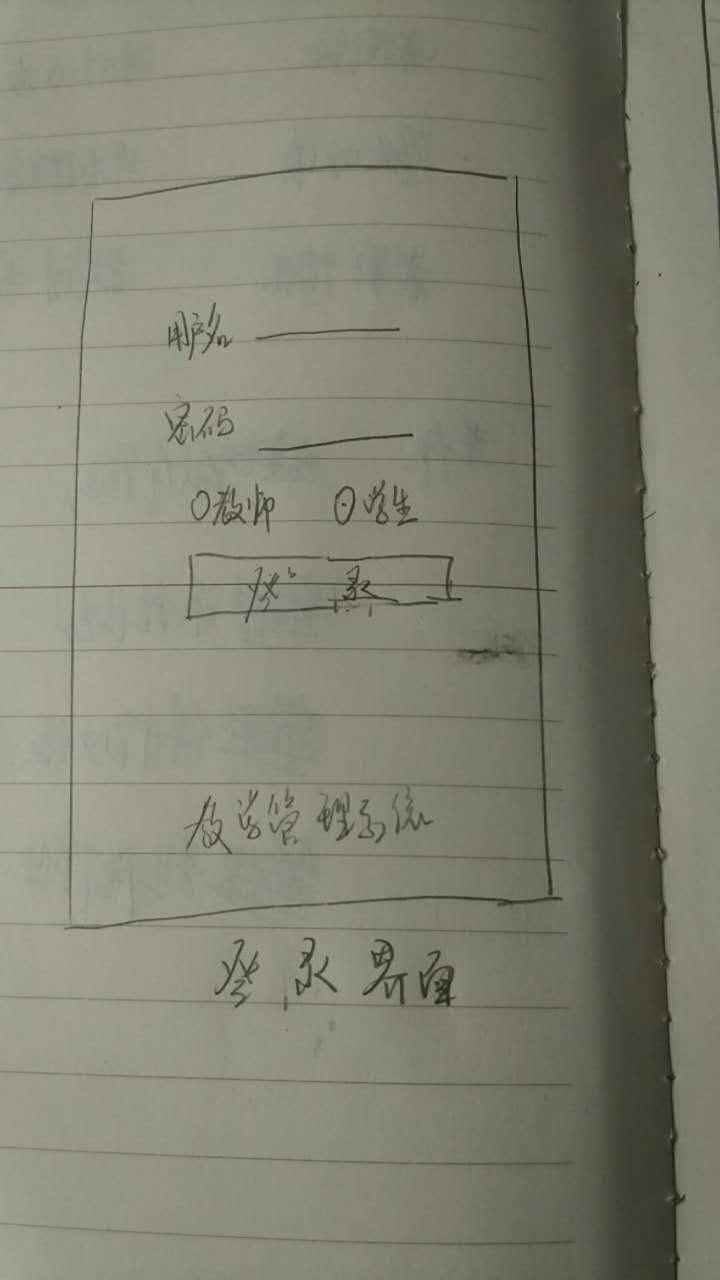 用户名
密码
教师 学生
登录
教学管理系统
登录界面